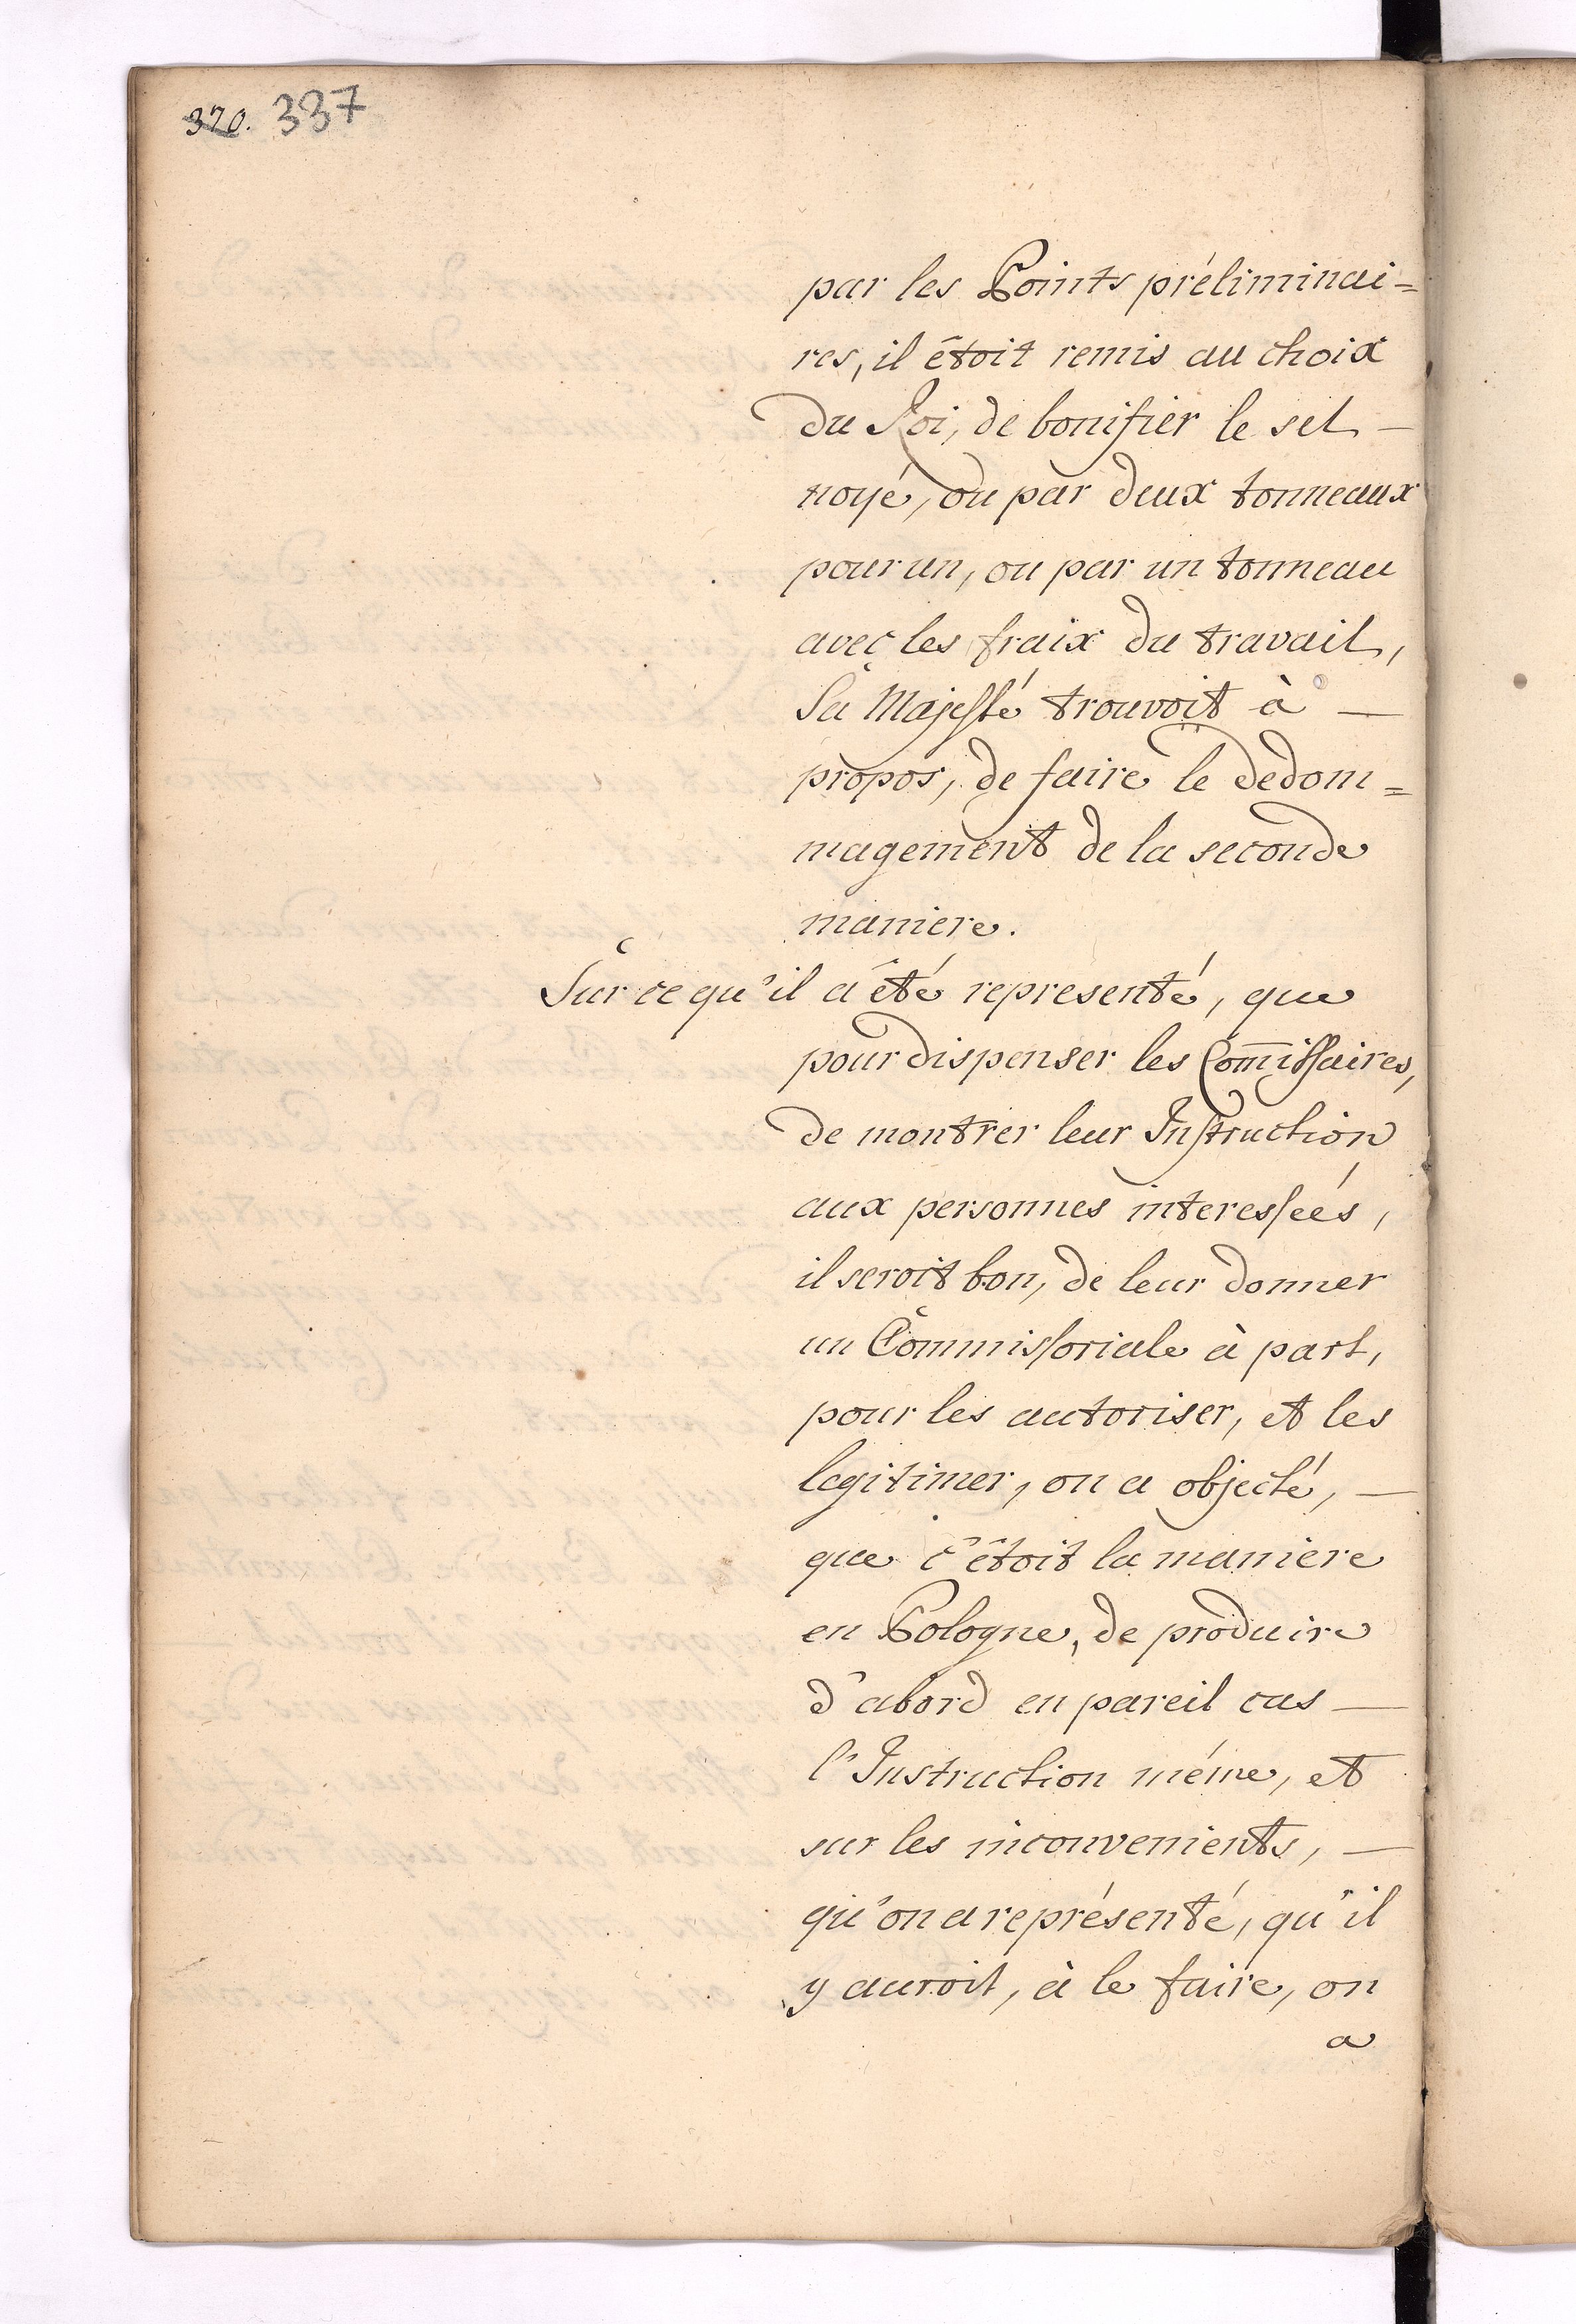 320. 337
par les Points préliminai=
res, il étoit remis au choix
du Roi, de bonifier le sel —
noyé, ou par deux tonneaux
pour un, ou par un tonneau
avec les fraix du travail,
Sa Majesté trouvoit à —
propos, de faire le dedom=
magement de la seconde
maniere.
Sur ce qu'il a été representé, que
pour dispenser les Com̅issaires,
de montrer leur Instruction
aux personnes interesseés,
il seroit bon, de leur donner
un Commissoriale à part,
pour les autoriser, et les
legitimer, on a objecté, —
que c'étoit la maniere
en Pologne, de produire
d'abord en pareil cas —
l'Instruction méme, et
sur les inconvenients, —
qu'on a représenté, qu'il
y auroit, à le faire, on
a